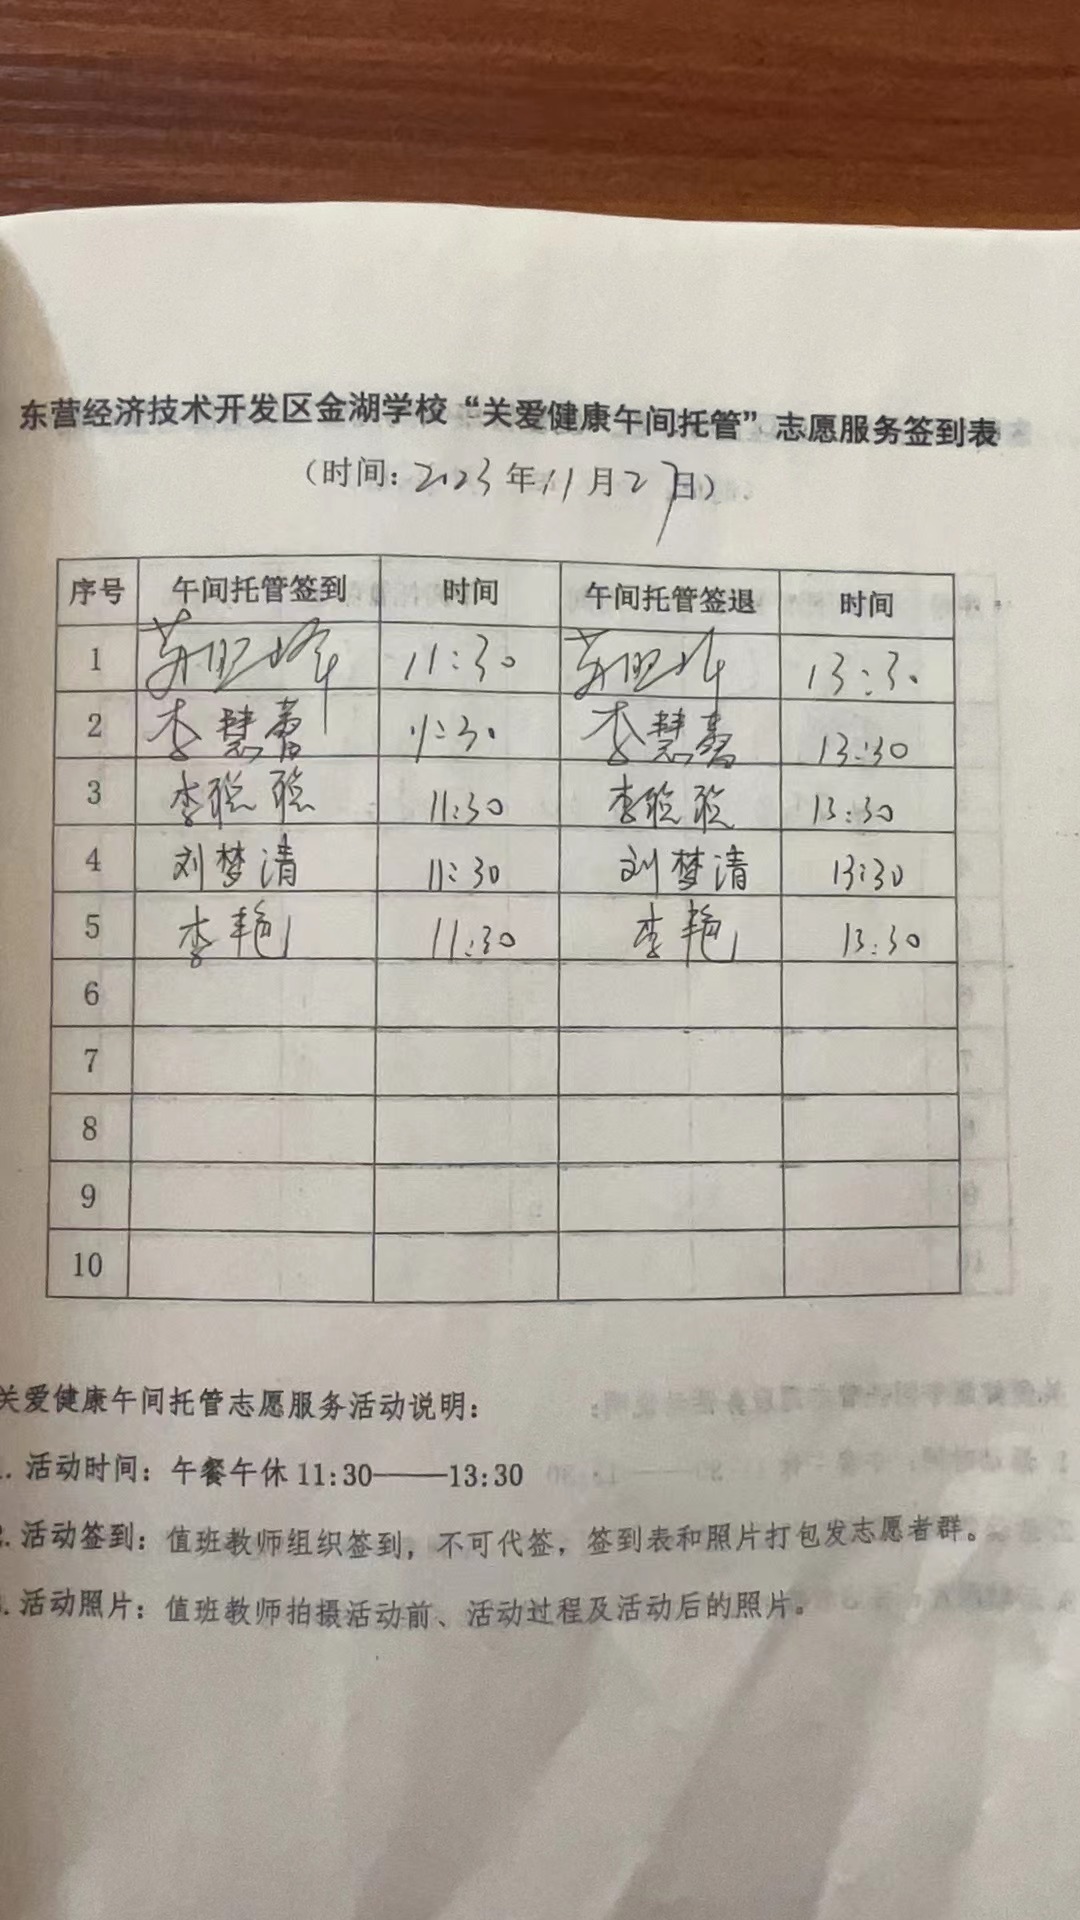 东营经济技术开发区金湖学校“关爱健康午间托管”志愿服务签到表
（时间：2023年11月27日）
序号 午间托管签到 时间 午间托管签退 时间
1 11:30 13:30
2 李慧 11:30 李慧 13:30
3 李聪聪 11:30 李聪聪 13:30
4 刘梦清 11:30 刘梦清 13:30
5 李艳 11:30 李艳 13:30
6
7
8
9
10
关爱健康午间托管志愿服务活动说明：
1. 活动时间：午餐午休11:30——13:30
2. 活动签到：值班教师组织签到，不可代签，签到表和照片打包发志愿者群。
3. 活动照片：值班教师拍摄活动前、活动过程及活动后的照片。